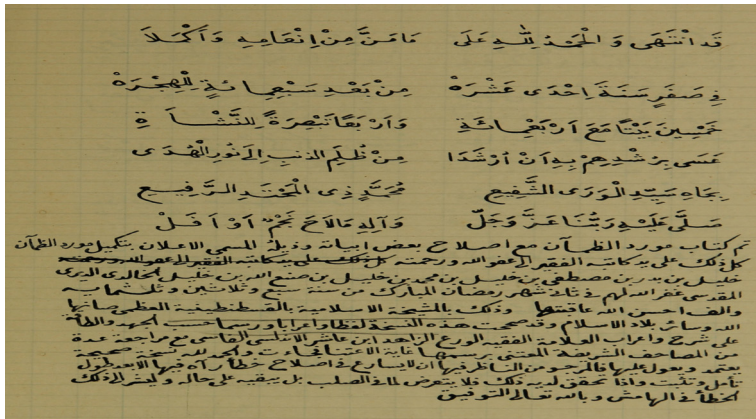 قَدِ انْتَهَى وَالْحَمْدُ لِلّٰهِ عَلَى مَا مَنَّ مِنْ إِنْعَامِهِ وَأَكْمَلَا
فِي صَفَرٍ سَنَةَ إِحْدَى عَشْرَهْ مِنْ بَعْدِ سَبْعِمِائَةٍ لِلْهِجْرَهْ
خَمْسِينَ بَيْتًا مَعَ أَرْبَعِمِائَةٍ وَأَرْبَعًا تَبْصِرَةً لِلنَّشْأَةِ
عَسَى بِرُشْدِهِمْ بِهِ أَنْ أُرْشَدَا مِنْ ظُلَمِ الذَّنْبِ إِلَى نُورِ الْهُدَى
بِجَاهِ سَيِّدِ الْوَرَى الشَّفِيعِ مُحَمَّدٍ ذِي الْمَحْتِدِ الرَّفِيعِ
صَلَّى عَلَيْهِ رَبُّنَا عَزَّ وَجَلّْ وَآلِهِ مَا لَاحَ نَجْمٌ أَوْ أَفَلْ
تم كتاب مورد الظمآن مع اصلاح بعض ابياته وذيله المسمى الاعلان بتكميل مورد الظمآن
كل ذلك على يد كاتبه الفقير الى عفو الله ورحمته
خليل بن بدر بن مصطفى بن خليل بن محمد بن خليل بن صنع الله بن خليل الخالدي الديري
المقدسي غفر الله لهم في ثاني شهر رمضان المبارك من سنة سبع وثلاثين وثلثمائه
والف احسن الله عاقبتها وذلك بالمشيخة الاسلامية بالقسطنطينية العظمى صانها
الله وسائر بلاد الاسلام وقد صححت هذه النسخة لفظا واعرابا ورسما حسب الجهد والطاقة
على شرح واعراب العلامة الفقيه الورع الزاهد ابن عاشر الاندلسي الفاسي مع مراجعة عدة
من المصاحف الشريفة المعتنى برسمها غاية الاعتناء فجاءت والحمد لله نسخة صحيحة
يعتمد ويعول عليها فالمرجو من الناظر فيها ان لا يسارع في اصلاح خطأ رآه فيها الا بعد طول
تأمل وتثبت واذا تحقق لديه ذلك فلا يتعرض لما في الصلب بل يبقيه على حاله وليشر الى ذلك
الخطأ في الهامش وبالله تعالى التوفيق